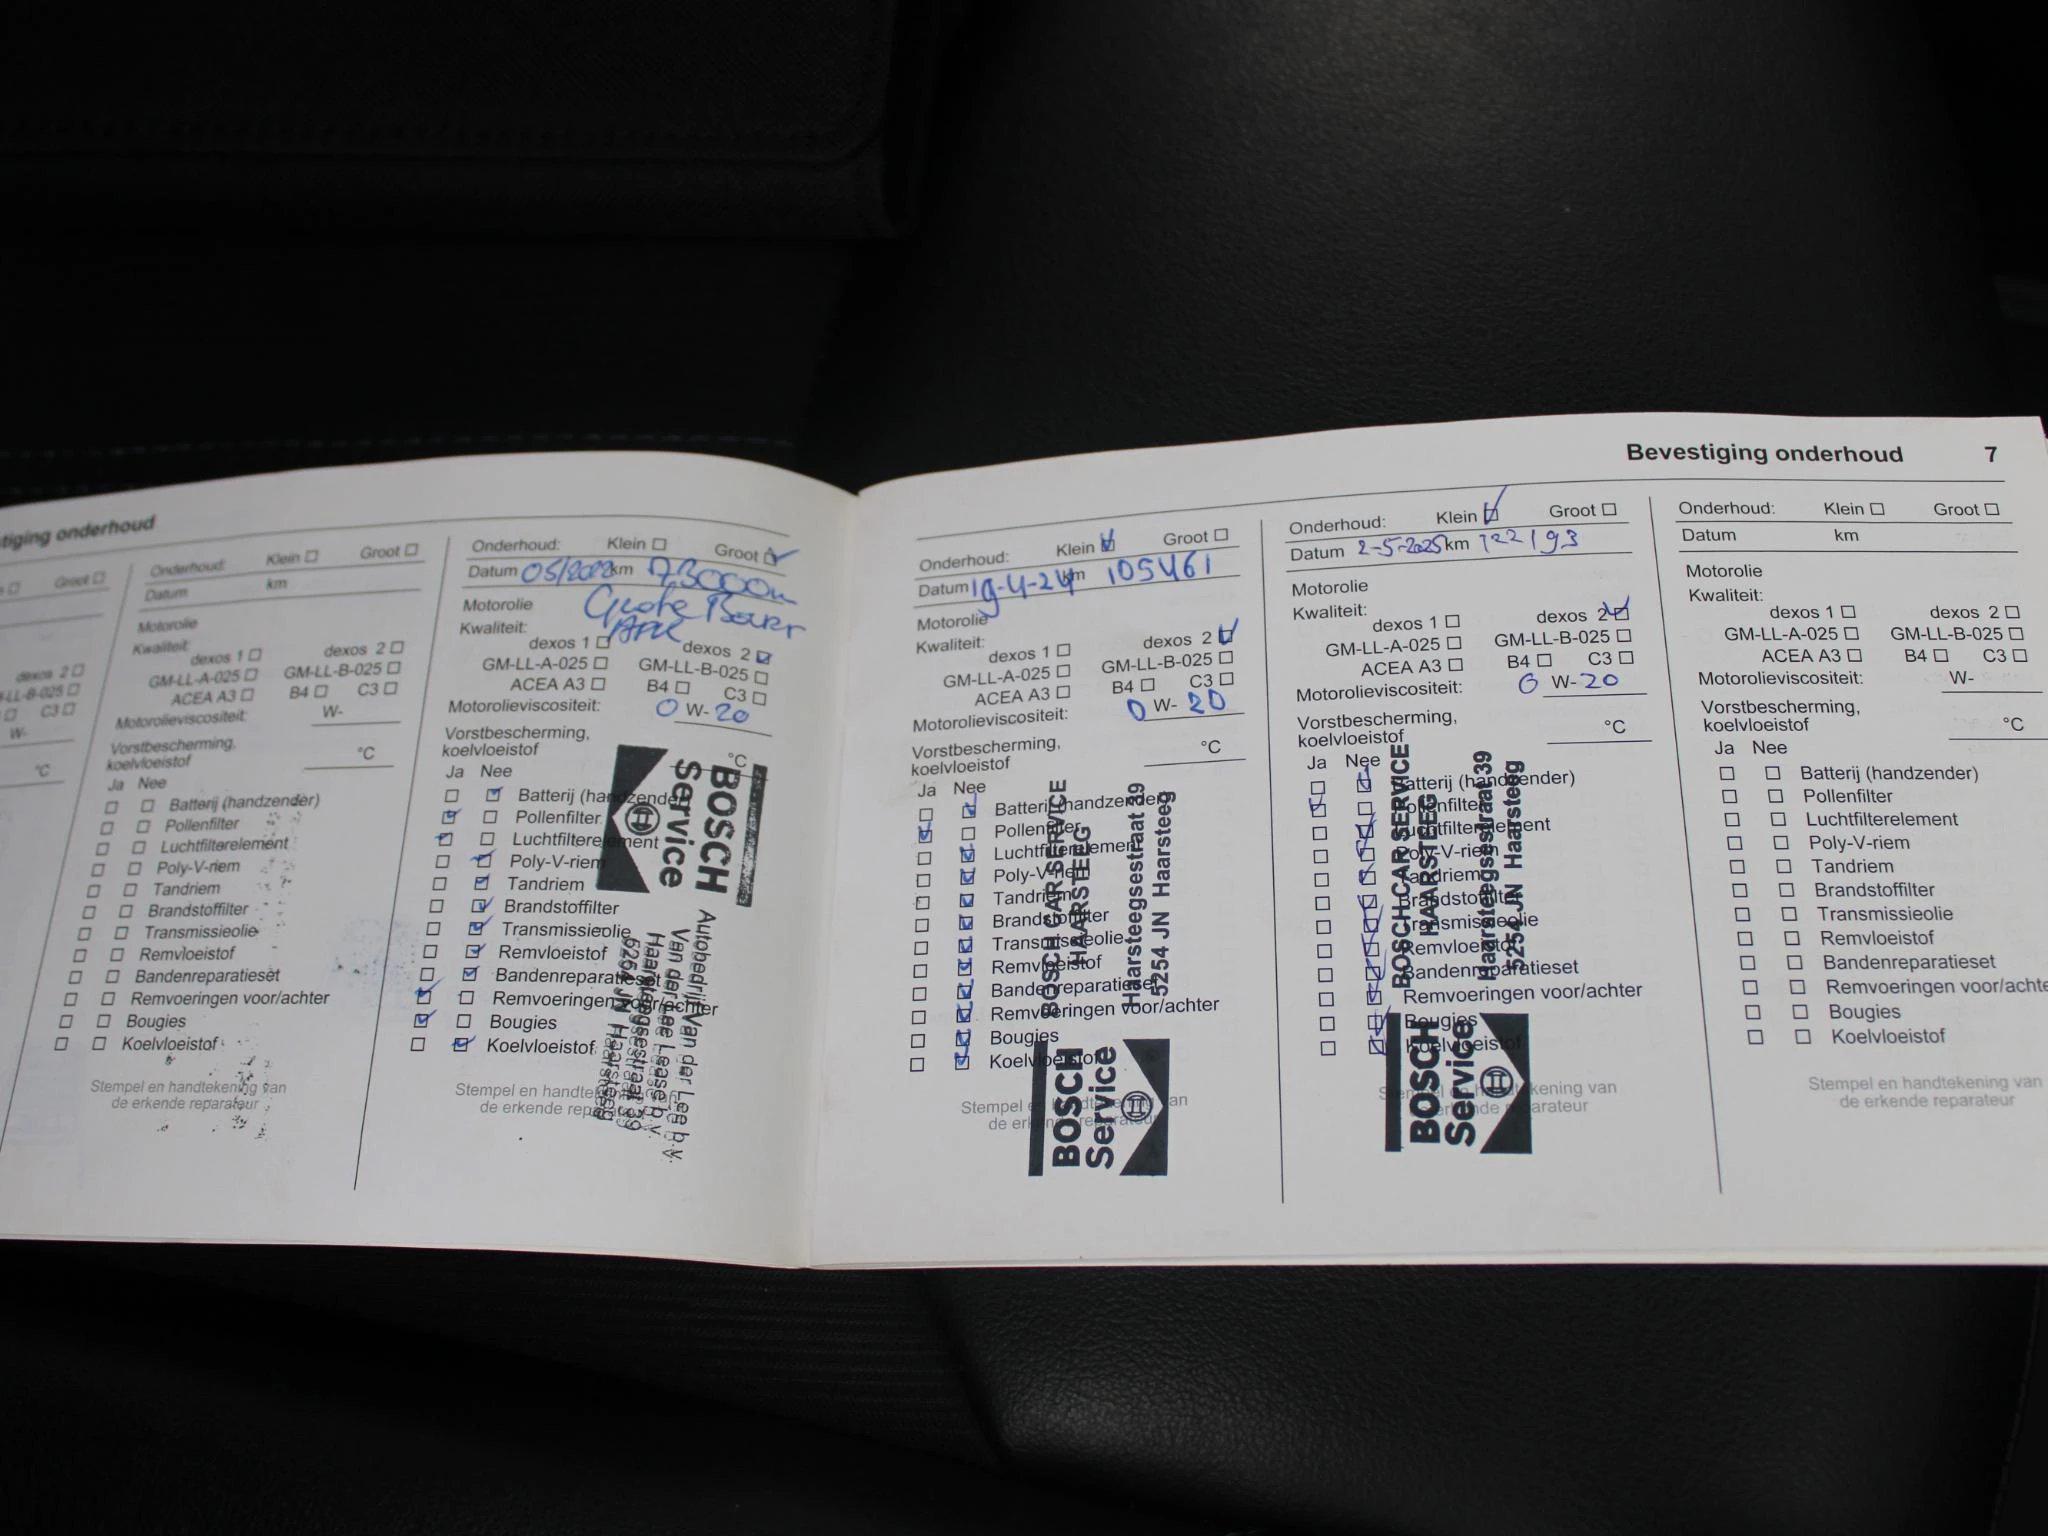 tiging onderhoud
Groot
dexos 2
-LL-B-025
C3
W-
°C
Onderhoud: Klein Groot
Datum km
Motorolie
Kwaliteit:
dexos 1 dexos 2
GM-LL-A-025 GM-LL-B-025
ACEA A3 B4 C3
Motorolieviscositeit: W-
Vorstbescherming,
koelvloeistof °C
Ja Nee
Batterij (handzender)
Pollenfilter
Luchtfilterelement
Poly-V-riem
Tandriem
Brandstoffilter
Transmissieolie
Remvloeistof
Bandenreparatieset
Remvoeringen voor/achter
Bougies
Koelvloeistof
Stempel en handtekening van
de erkende reparateur
Onderhoud: Klein Groot
Datum 05/2022 km 93000
Grote Beurt
APK
Motorolie
Kwaliteit:
dexos 1 dexos 2
GM-LL-A-025 GM-LL-B-025
ACEA A3 B4 C3
Motorolieviscositeit: 0 W- 20
Vorstbescherming,
koelvloeistof °C
Ja Nee
Batterij (handzender)
Pollenfilter
Luchtfilterelement
Poly-V-riem
Tandriem
Brandstoffilter
Transmissieolie
Remvloeistof
Bandenreparatieset
Remvoeringen voor/achter
Bougies
Koelvloeistof
Stempel en handtekening
de erkende reparateur
BOSCH
Service
Autobedrijf Van der Lee b.v.
Van der Lee Lease b.v.
Haarsteegsestraat 39
5254 JN Haarsteeg
Bevestiging onderhoud 7
Onderhoud: Klein Groot
Datum 19-4-24 km 105461
Motorolie
Kwaliteit:
dexos 1 dexos 2
GM-LL-A-025 GM-LL-B-025
ACEA A3 B4 C3
Motorolieviscositeit: 0 W- 20
Vorstbescherming,
koelvloeistof °C
Ja Nee
Batterij (handzender)
Pollenfilter
Luchtfilterelement
Poly-V-riem
Tandriem
Brandstoffilter
Transmissieolie
Remvloeistof
Bandenreparatieset
Remvoeringen voor/achter
Bougies
Koelvloeistof
Stempel en handtekening van
de erkende reparateur
BOSCH
Service
BOSCH CAR SERVICE
HAARSTEEG
Haarsteegsestraat 39
5254 JN Haarsteeg
Onderhoud: Klein Groot
Datum 2-5-2025 km 122193
Motorolie
Kwaliteit:
dexos 1 dexos 2
GM-LL-A-025 GM-LL-B-025
ACEA A3 B4 C3
Motorolieviscositeit: 0 W- 20
Vorstbescherming,
koelvloeistof °C
Ja Nee
Batterij (handzender)
Pollenfilter
Luchtfilterelement
Poly-V-riem
Tandriem
Brandstoffilter
Transmissieolie
Remvloeistof
Bandenreparatieset
Remvoeringen voor/achter
Bougies
Koelvloeistof
Stempel en handtekening van
de erkende reparateur
BOSCH
Service
BOSCH CAR SERVICE
HAARSTEEG
Haarsteegsestraat 39
5254 JN Haarsteeg
Onderhoud: Klein Groot
Datum km
Motorolie
Kwaliteit:
dexos 1 dexos 2
GM-LL-A-025 GM-LL-B-025
ACEA A3 B4 C3
Motorolieviscositeit: W-
Vorstbescherming,
koelvloeistof °C
Ja Nee
Batterij (handzender)
Pollenfilter
Luchtfilterelement
Poly-V-riem
Tandriem
Brandstoffilter
Transmissieolie
Remvloeistof
Bandenreparatieset
Remvoeringen voor/achte
Bougies
Koelvloeistof
Stempel en handtekening van
de erkende reparateur